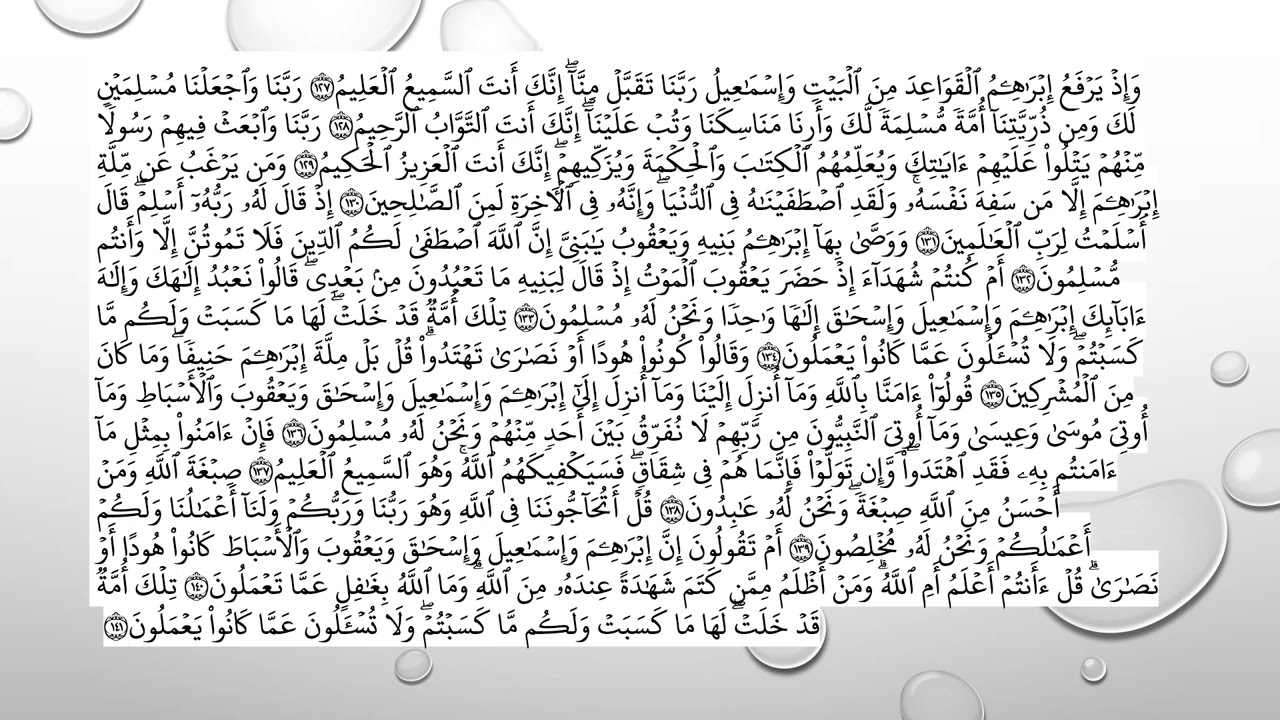 وَإِذۡ يَرۡفَعُ إِبۡرَٰهِـۧمُ ٱلۡقَوَاعِدَ مِنَ ٱلۡبَيۡتِ وَإِسۡمَٰعِيلُ رَبَّنَا تَقَبَّلۡ مِنَّآۖ إِنَّكَ أَنتَ ٱلسَّمِيعُ ٱلۡعَلِيمُ ١٢٧ رَبَّنَا وَٱجۡعَلۡنَا مُسۡلِمَيۡنِ
لَكَ وَمِن ذُرِّيَّتِنَآ أُمَّةٗ مُّسۡلِمَةٗ لَّكَ وَأَرِنَا مَنَاسِكَنَا وَتُبۡ عَلَيۡنَآۖ إِنَّكَ أَنتَ ٱلتَّوَّابُ ٱلرَّحِيمُ ١٢٨ رَبَّنَا وَٱبۡعَثۡ فِيهِمۡ رَسُولٗا
مِّنۡهُمۡ يَتۡلُواْ عَلَيۡهِمۡ ءَايَٰتِكَ وَيُعَلِّمُهُمُ ٱلۡكِتَٰبَ وَٱلۡحِكۡمَةَ وَيُزَكِّيهِمۡۖ إِنَّكَ أَنتَ ٱلۡعَزِيزُ ٱلۡحَكِيمُ ١٢٩ وَمَن يَرۡغَبُ عَن مِّلَّةِ
إِبۡرَٰهِـۧمَ إِلَّا مَن سَفِهَ نَفۡسَهُۥۚ وَلَقَدِ ٱصۡطَفَيۡنَٰهُ فِي ٱلدُّنۡيَاۖ وَإِنَّهُۥ فِي ٱلۡأٓخِرَةِ لَمِنَ ٱلصَّٰلِحِينَ ١٣٠ إِذۡ قَالَ لَهُۥ رَبُّهُۥٓ أَسۡلِمۡۖ قَالَ
أَسۡلَمۡتُ لِرَبِّ ٱلۡعَٰلَمِينَ ١٣١ وَوَصَّىٰ بِهَآ إِبۡرَٰهِـۧمُ بَنِيهِ وَيَعۡقُوبُ يَٰبَنِيَّ إِنَّ ٱللَّهَ ٱصۡطَفَىٰ لَكُمُ ٱلدِّينَ فَلَا تَمُوتُنَّ إِلَّا وَأَنتُم
مُّسۡلِمُونَ ١٣٢ أَمۡ كُنتُمۡ شُهَدَآءَ إِذۡ حَضَرَ يَعۡقُوبَ ٱلۡمَوۡتُ إِذۡ قَالَ لِبَنِيهِ مَا تَعۡبُدُونَ مِنۢ بَعۡدِيۖ قَالُواْ نَعۡبُدُ إِلَٰهَكَ وَإِلَٰهَ
ءَابَآئِكَ إِبۡرَٰهِـۧمَ وَإِسۡمَٰعِيلَ وَإِسۡحَٰقَ إِلَٰهٗا وَٰحِدٗا وَنَحۡنُ لَهُۥ مُسۡلِمُونَ ١٣٣ تِلۡكَ أُمَّةٞ قَدۡ خَلَتۡۖ لَهَا مَا كَسَبَتۡ وَلَكُم مَّا
كَسَبۡتُمۡۖ وَلَا تُسۡـَٔلُونَ عَمَّا كَانُواْ يَعۡمَلُونَ ١٣٤ وَقَالُواْ كُونُواْ هُودًا أَوۡ نَصَٰرَىٰ تَهۡتَدُواْۗ قُلۡ بَلۡ مِلَّةَ إِبۡرَٰهِـۧمَ حَنِيفٗاۖ وَمَا كَانَ
مِنَ ٱلۡمُشۡرِكِينَ ١٣٥ قُولُوٓاْ ءَامَنَّا بِٱللَّهِ وَمَآ أُنزِلَ إِلَيۡنَا وَمَآ أُنزِلَ إِلَىٰٓ إِبۡرَٰهِـۧمَ وَإِسۡمَٰعِيلَ وَإِسۡحَٰقَ وَيَعۡقُوبَ وَٱلۡأَسۡبَاطِ وَمَآ
أُوتِيَ مُوسَىٰ وَعِيسَىٰ وَمَآ أُوتِيَ ٱلنَّبِيُّونَ مِن رَّبِّهِمۡ لَا نُفَرِّقُ بَيۡنَ أَحَدٖ مِّنۡهُمۡ وَنَحۡنُ لَهُۥ مُسۡلِمُونَ ١٣٦ فَإِنۡ ءَامَنُواْ بِمِثۡلِ مَآ
ءَامَنتُم بِهِۦ فَقَدِ ٱهۡتَدَواْۖ وَّإِن تَوَلَّوۡاْ فَإِنَّمَا هُمۡ فِي شِقَاقٖۖ فَسَيَكۡفِيكَهُمُ ٱللَّهُۚ وَهُوَ ٱلسَّمِيعُ ٱلۡعَلِيمُ ١٣٧ صِبۡغَةَ ٱللَّهِ وَمَنۡ
أَحۡسَنُ مِنَ ٱللَّهِ صِبۡغَةٗۖ وَنَحۡنُ لَهُۥ عَٰبِدُونَ ١٣٨ قُلۡ أَتُحَآجُّونَنَا فِي ٱللَّهِ وَهُوَ رَبُّنَا وَرَبُّكُمۡ وَلَنَآ أَعۡمَٰلُنَا وَلَكُمۡ
أَعۡمَٰلُكُمۡ وَنَحۡنُ لَهُۥ مُخۡلِصُونَ ١٣٩ أَمۡ تَقُولُونَ إِنَّ إِبۡرَٰهِـۧمَ وَإِسۡمَٰعِيلَ وَإِسۡحَٰقَ وَيَعۡقُوبَ وَٱلۡأَسۡبَاطَ كَانُواْ هُودًا أَوۡ
نَصَٰرَىٰۗ قُلۡ ءَأَنتُمۡ أَعۡلَمُ أَمِ ٱللَّهُۗ وَمَنۡ أَظۡلَمُ مِمَّن كَتَمَ شَهَٰدَةً عِندَهُۥ مِنَ ٱللَّهِۗ وَمَا ٱللَّهُ بِغَٰفِلٍ عَمَّا تَعۡمَلُونَ ١٤٠ تِلۡكَ أُمَّةٞ
قَدۡ خَلَتۡۖ لَهَا مَا كَسَبَتۡ وَلَكُم مَّا كَسَبۡتُمۡۖ وَلَا تُسۡـَٔلُونَ عَمَّا كَانُواْ يَعۡمَلُونَ ١٤١